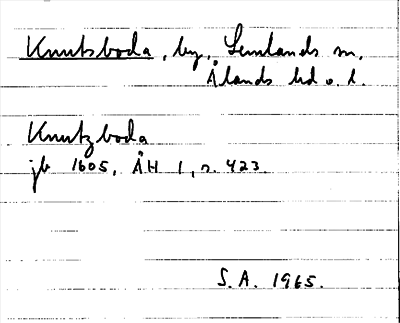 Knutsboda, by, Lemlands sn,
Ålands hd o. l.
Knutzboda
jb 1605, ÅH 1, s. 423.
S.A. 1965.